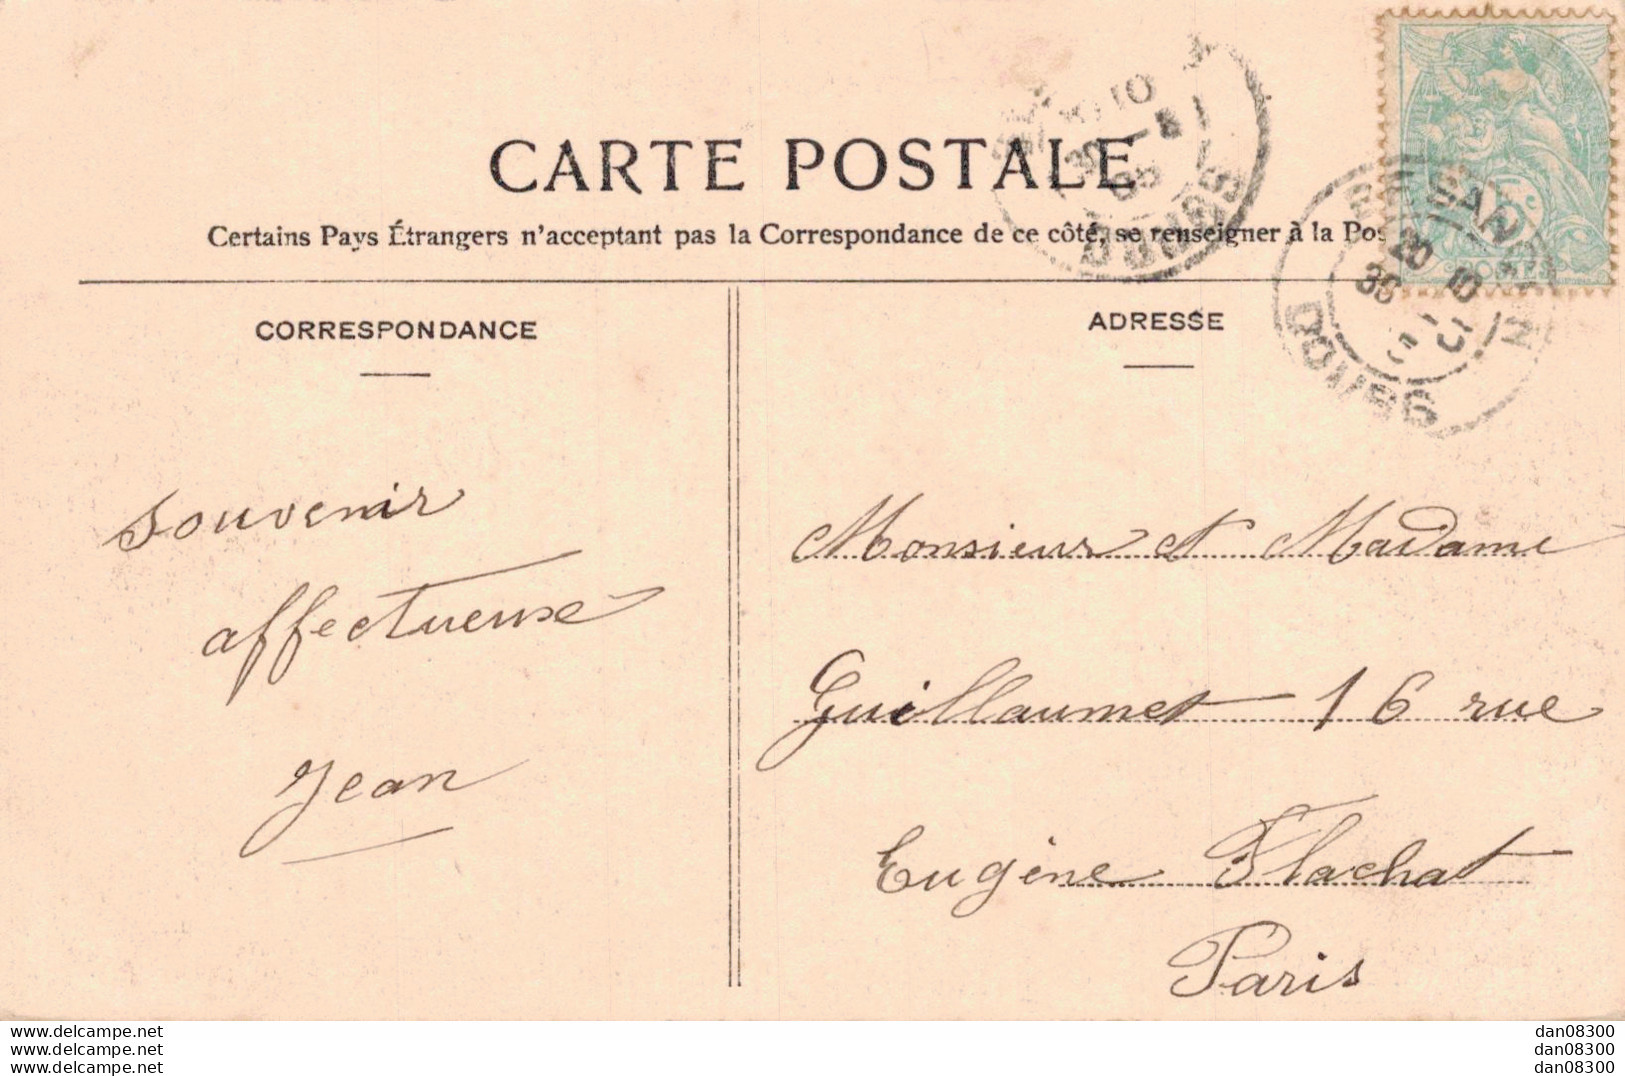 CARTE POSTALE
Certains Pays Étrangers n'acceptant pas la Correspondance de ce côté, se renseigner à la Pos
CORRESPONDANCE
ADRESSE
souvenir
affectueuse
Jean
Monsieur et Madame
Guillaumet 16 rue
Eugène Flachat
Paris
DOUBS
www.delcampe.net
www.delcampe.net
www.delcampe.net
dan08300
dan08300
dan08300